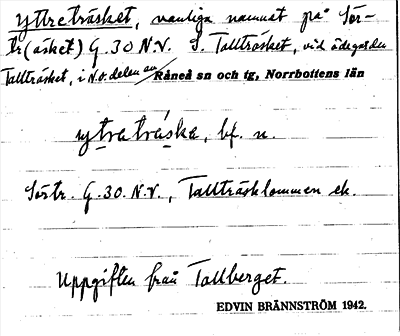 yttreträsket, vanliga namnet på Sör-
tr(äsket) G.30 N.V. S. Tallträsket, vid ödegården
Tallträsket, i N.o. delen av Råneå sn och tg, Norrbottens län
ytraträska, bf. n.
Sörtr. G.30.N.V., Tallträsklommen ek.
Uppgiften från Tallberget.
EDVIN BRÄNNSTRÖM 1942.